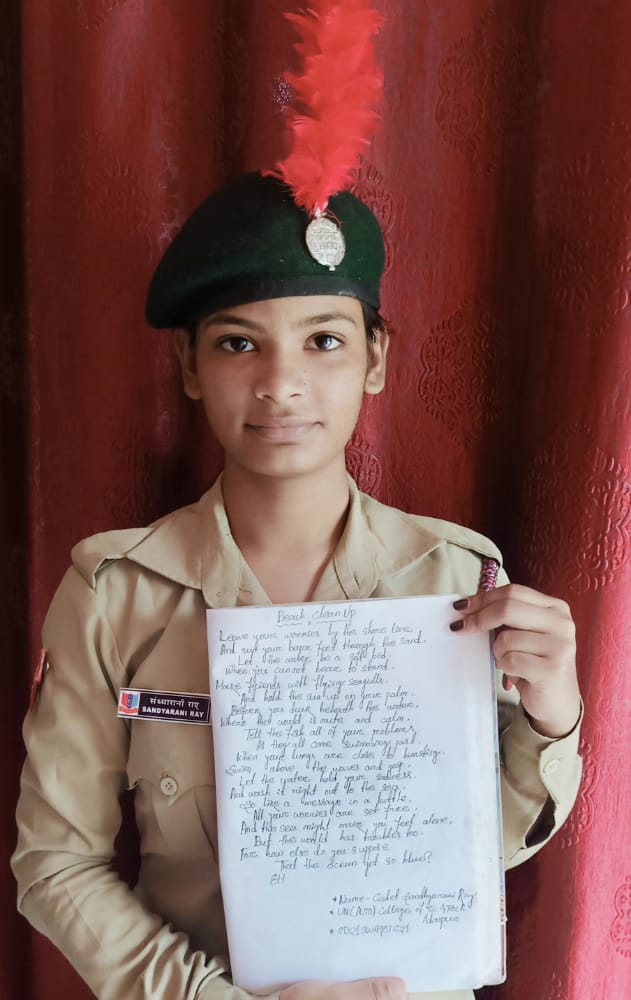 Beach Clean Up
Leave your worries by the shore line,
And run your bare feet through the sand.
Let the water be a soft bed,
When you cannot bear to stand.
Make friends with flying seagulls.
And hold the sun up on your palm.
Before you duck beneath the water,
Where the world is mute and calm,
Tell the fish all of your problems,
As they all come swimming past.
When your lungs are close to bursting.
Swim above the waves and gasp,
Let the water hold your sadness.
And wash it right out to the sea.
So like a message in a bottle,
All your worries are set free,
And the sea might make you feel alone,
But the world has troubles too.
For how else do you suppose
That the ocean got so blue?
EH
संध्यारानी राए
SANDYARANI RAY
* Name- Cadet- Sandhyarani Ray
* UN(AUTO) College of Sc & Tech
Adaspur